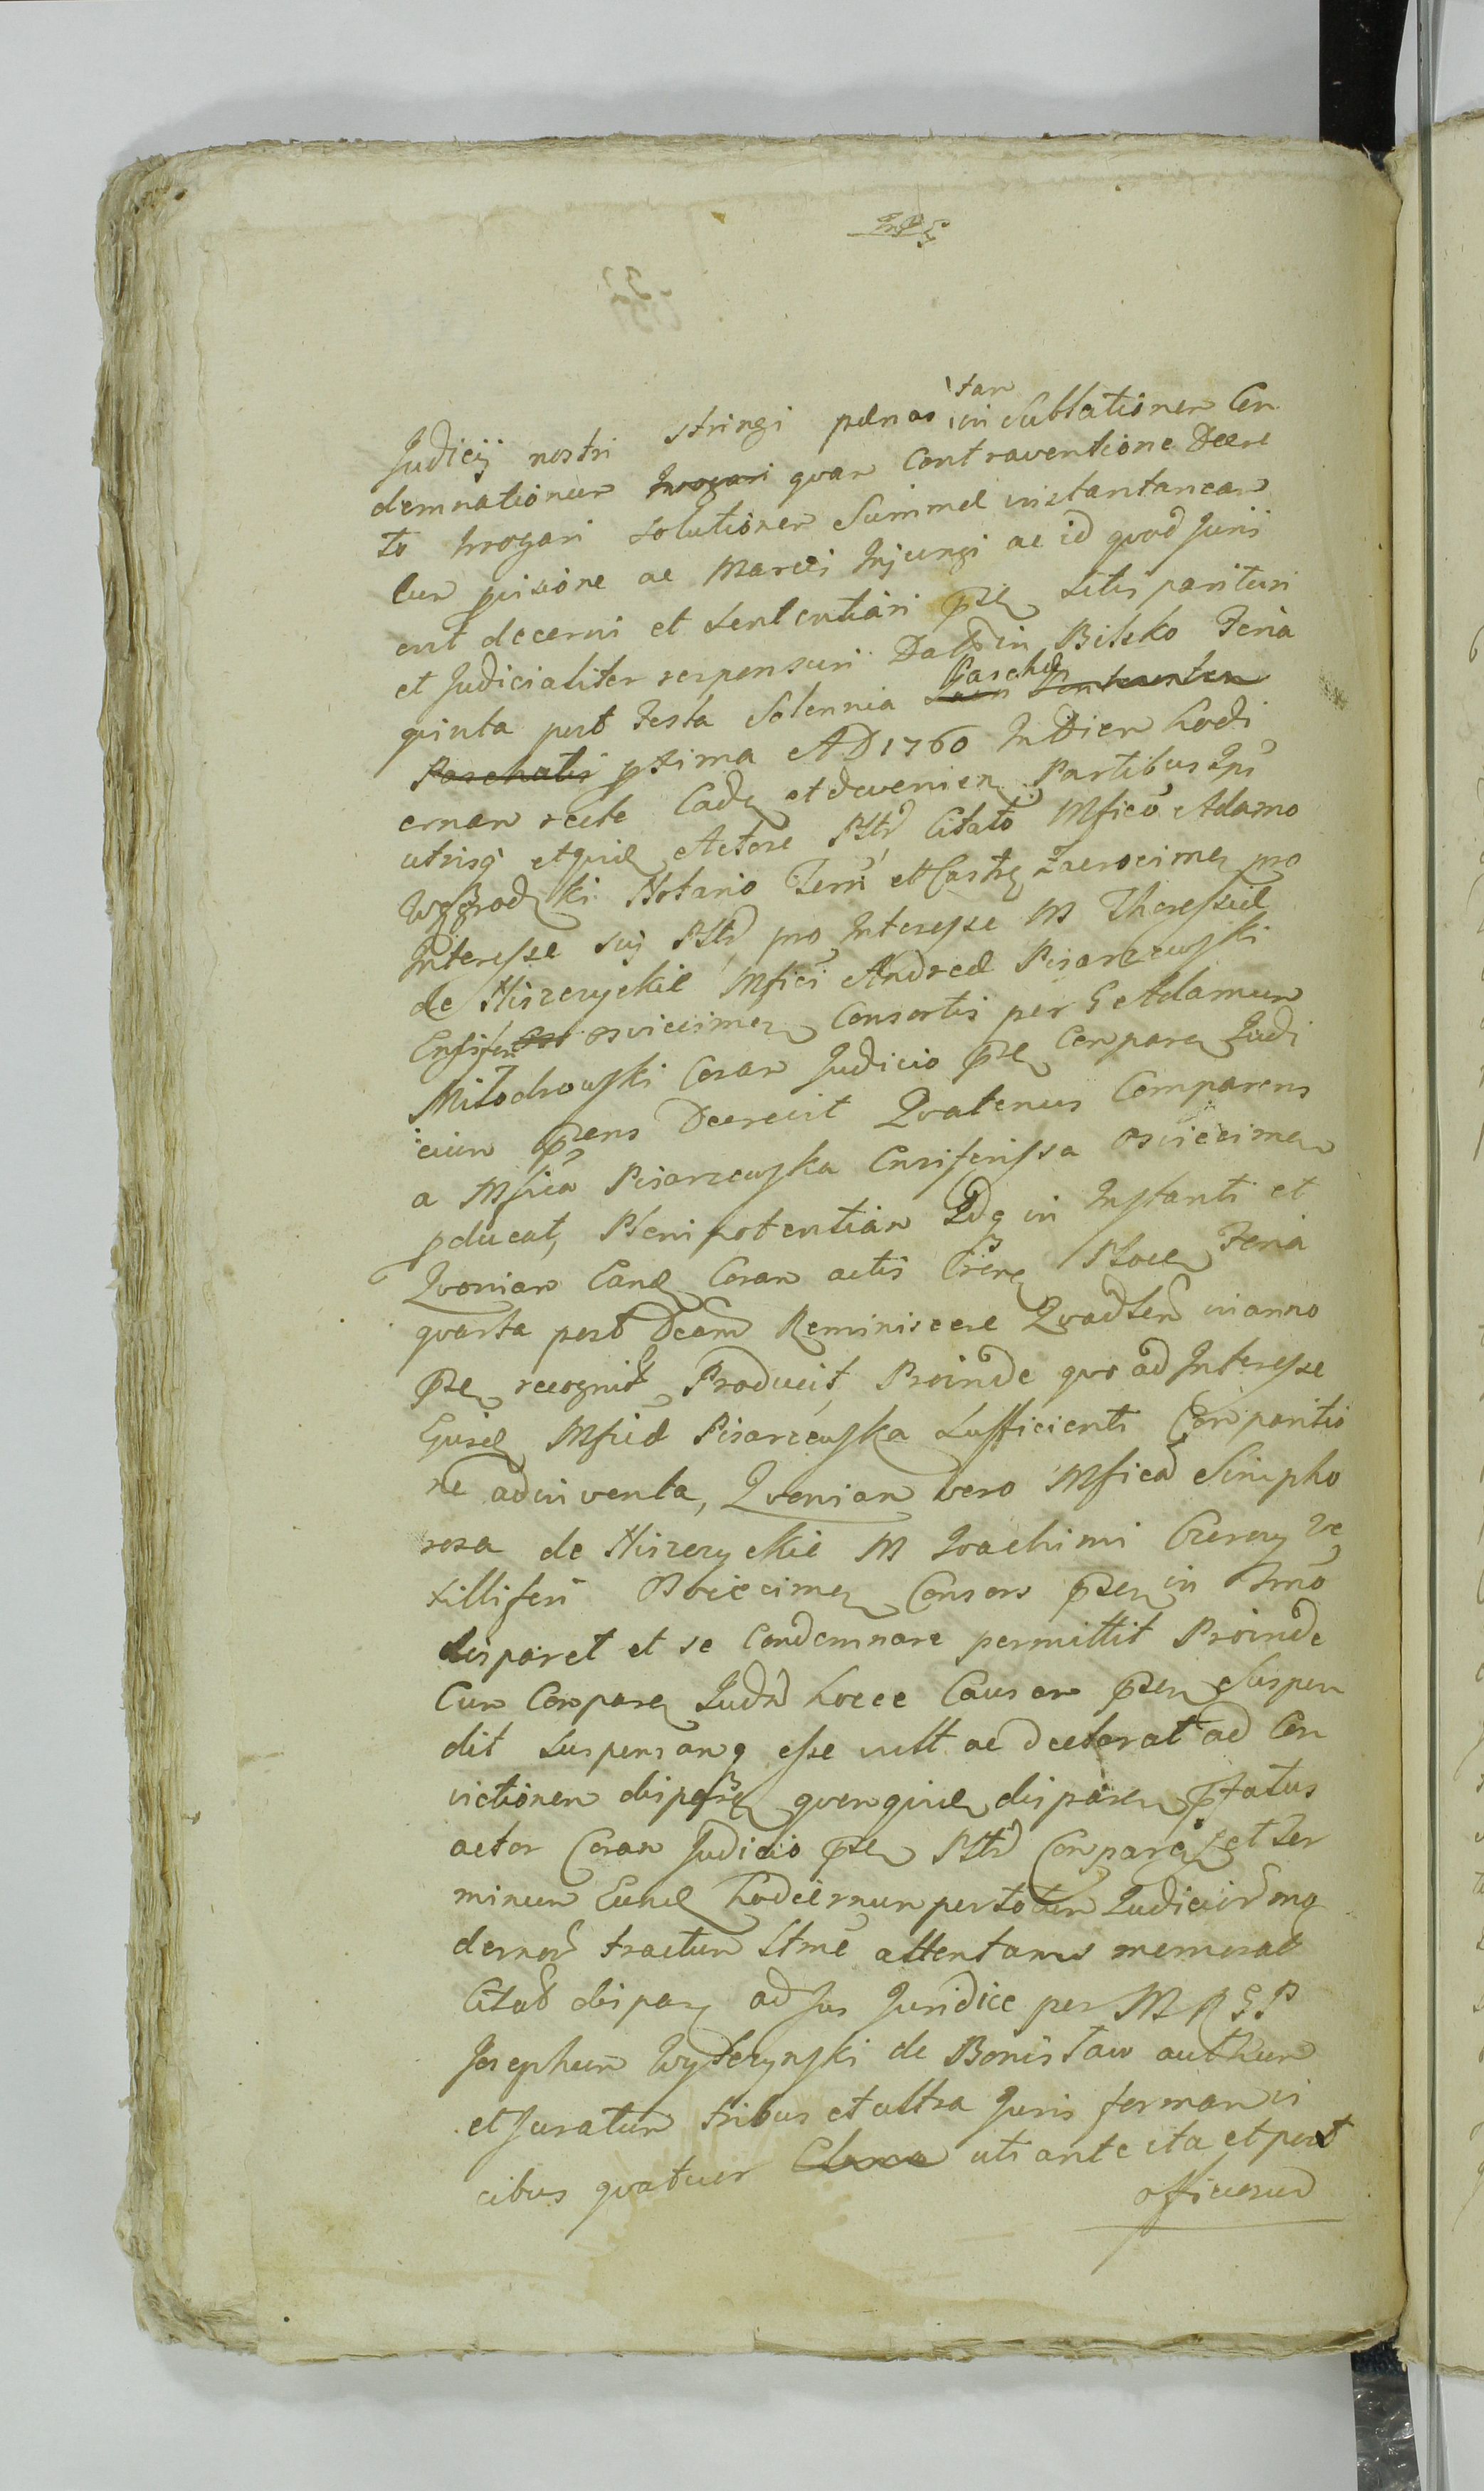 Judicij nostri stringi pænas tam in sublationem Con
demnationum Irrogari quam Contraventione Decre
to Irrogari solutionem Summæ instantaneam
cum pisione ac Marcis Injungi ac id quod Juris
erit decerni et sententiari pse sitis parituri
et Judicialiter responsuri Datt in Bilsko Feria
quinta post Festa Solennia Paschæ
Paschatis pxima AD 1760 In Diem hodi
ernam recte Cade et devenien Partibus Ips
utrisq et quid Actore Pttr Citato Mfico Adamo
Wygrodzki Notario Terri et Castre Zatrocimen pro
Interesse suj Pttr pro Interesse M Theressiæ
de Niszczyckie Mfici Andreæ Pisarzewski
Ensiferi Osviecimen Consortis per G Adamum
Miłodrowski Coram Judicio pse Compare Judi
cium psens Decrevit Quatenus Comparens
a Mfica Pisarzewska Ensiferissa Osviecimen
pducat, Plenipotentiam Qdq in Instanti et
Quoniam Eand Coram actis Csene Ploce Feria
quarta post Dcam Reminiscere Quadsem in anno
pse recognit Producit, Proinde quo ad Interesse
Ejusd Mficæ Pisarzewska Sufficienti Comparitio
ne adinventa, Quoniam vero Mfica Simpho
rosa de Niszczyckie M Joachimi Czerny Ve
xilliferi Osviecimen Consors psen in Tmo
disparet et se Condemnare permittit Proinde
Cum Compare Judm hocce Causam psen Suspen
dit suspensamq esse vult ac declarat ad Con
victionem dispare quemquid disparen pfatus
actor Coram Judicio pse Pttr Compare et Ter
minum Eund hodiernum per totum Judicior mo
dernor tractum Ltme attentans memorat
Citat dispar ad Jus Juridice per M R G P
Josephum Wydzynski de Bonisław authum
et Juratum tribus et ultra Juris formam vi
cibus quatuor Clama uti ante ita et post
officiosum